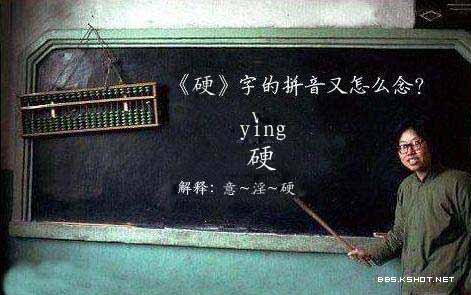 《硬》字的拼音又怎么念?
yìng
硬
解释: 意~淫~硬
BBS.KSHOT.NET